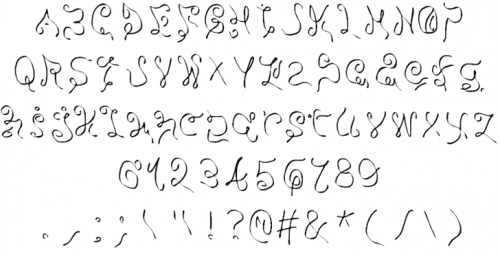 ABCDEFGHIJKLMNOP
QRSTUVWXYZabcdefg
hijklmnopqrstuvwxyz
0123456789
.,:;'"!?@#&*(/\)